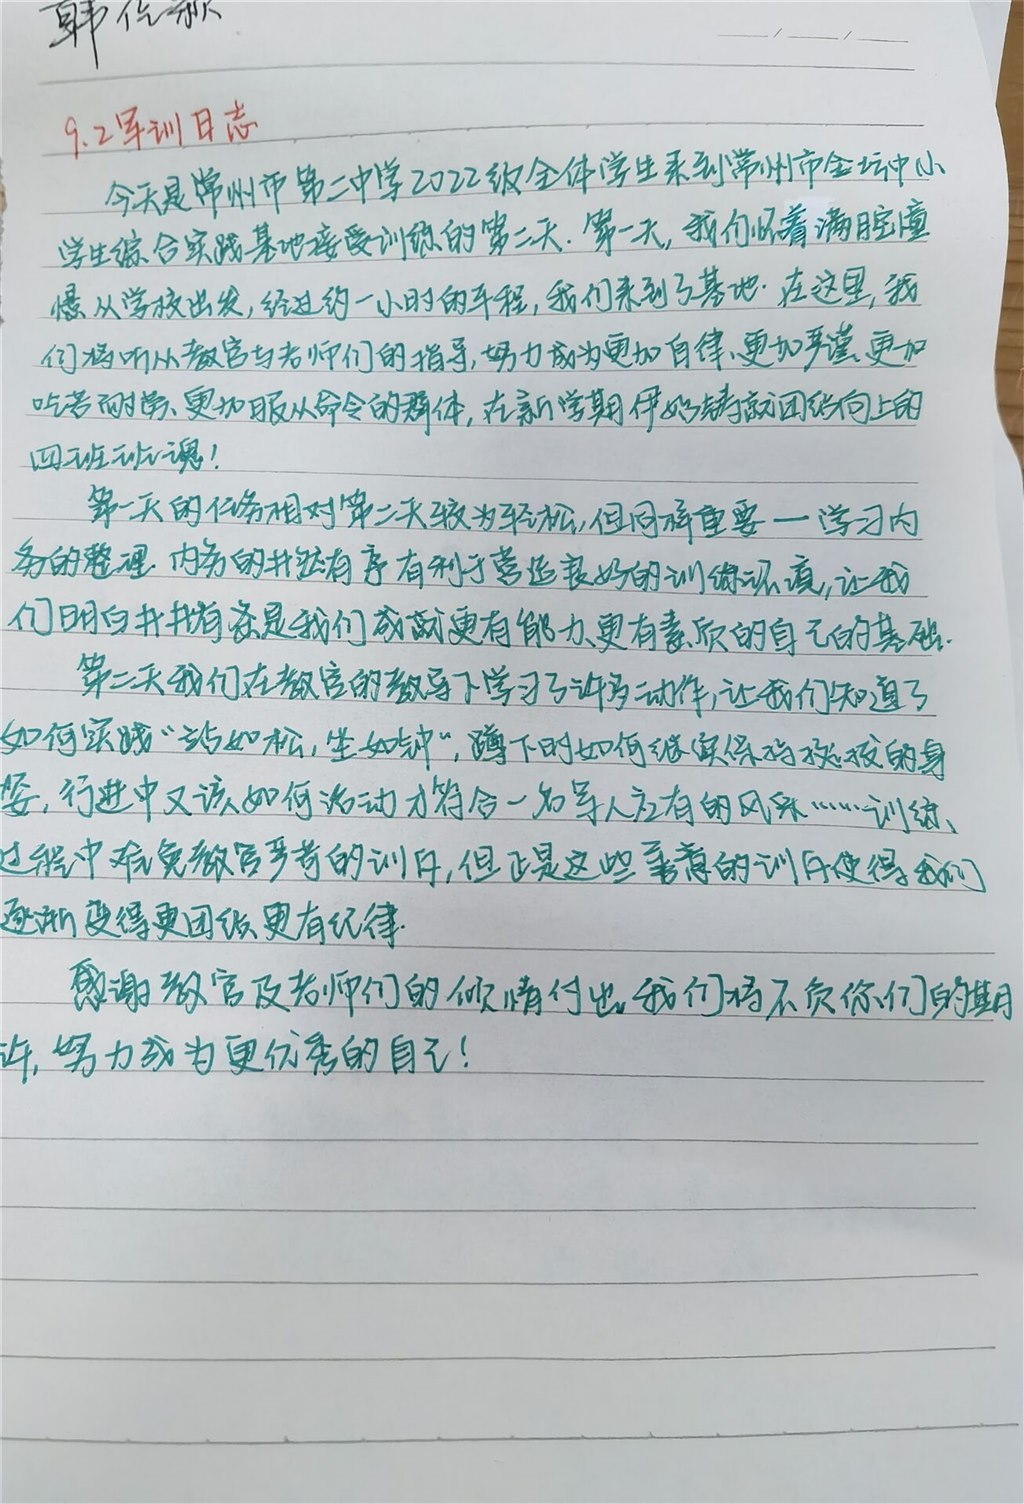 韩
9.2军训日志
今天是常州市第二中学2022级全体学生来到常州市金坛中小
学生综合实践基地接受训练的第二天.第一天,我们怀着满腔憧
憬从学校出发,经过约一小时的车程,我们来到了基地.在这里,我
们将听从教官与老师们的指导,努力成为更加自律、更加严谨、更加
吃苦耐劳、更加服从命令的群体,在新学期伊始铸就团结向上的
四班班魂!
第一天的任务相对第二天较为轻松,但同样重要一学习内
务的整理.内务的井然有序有利于营造良好的训练环境,让我
们明白井井有条是我们成就更有能力、更有素质的自己的基础.
第二天我们在教官的教导下学习了许多动作,让我们知道了
如何实践“站如松,坐如钟”,蹲下时如何继续保持挺拔的身
姿,行进中又该如何活动才符合一名军人应有的风采……训练
过程中难免教官严苛的训斥,但正是这些善意的训斥使得我们
逐渐变得更团结更有纪律.
感谢教官及老师们的倾情付出,我们将不负你们的期
许,努力成为更优秀的自己!